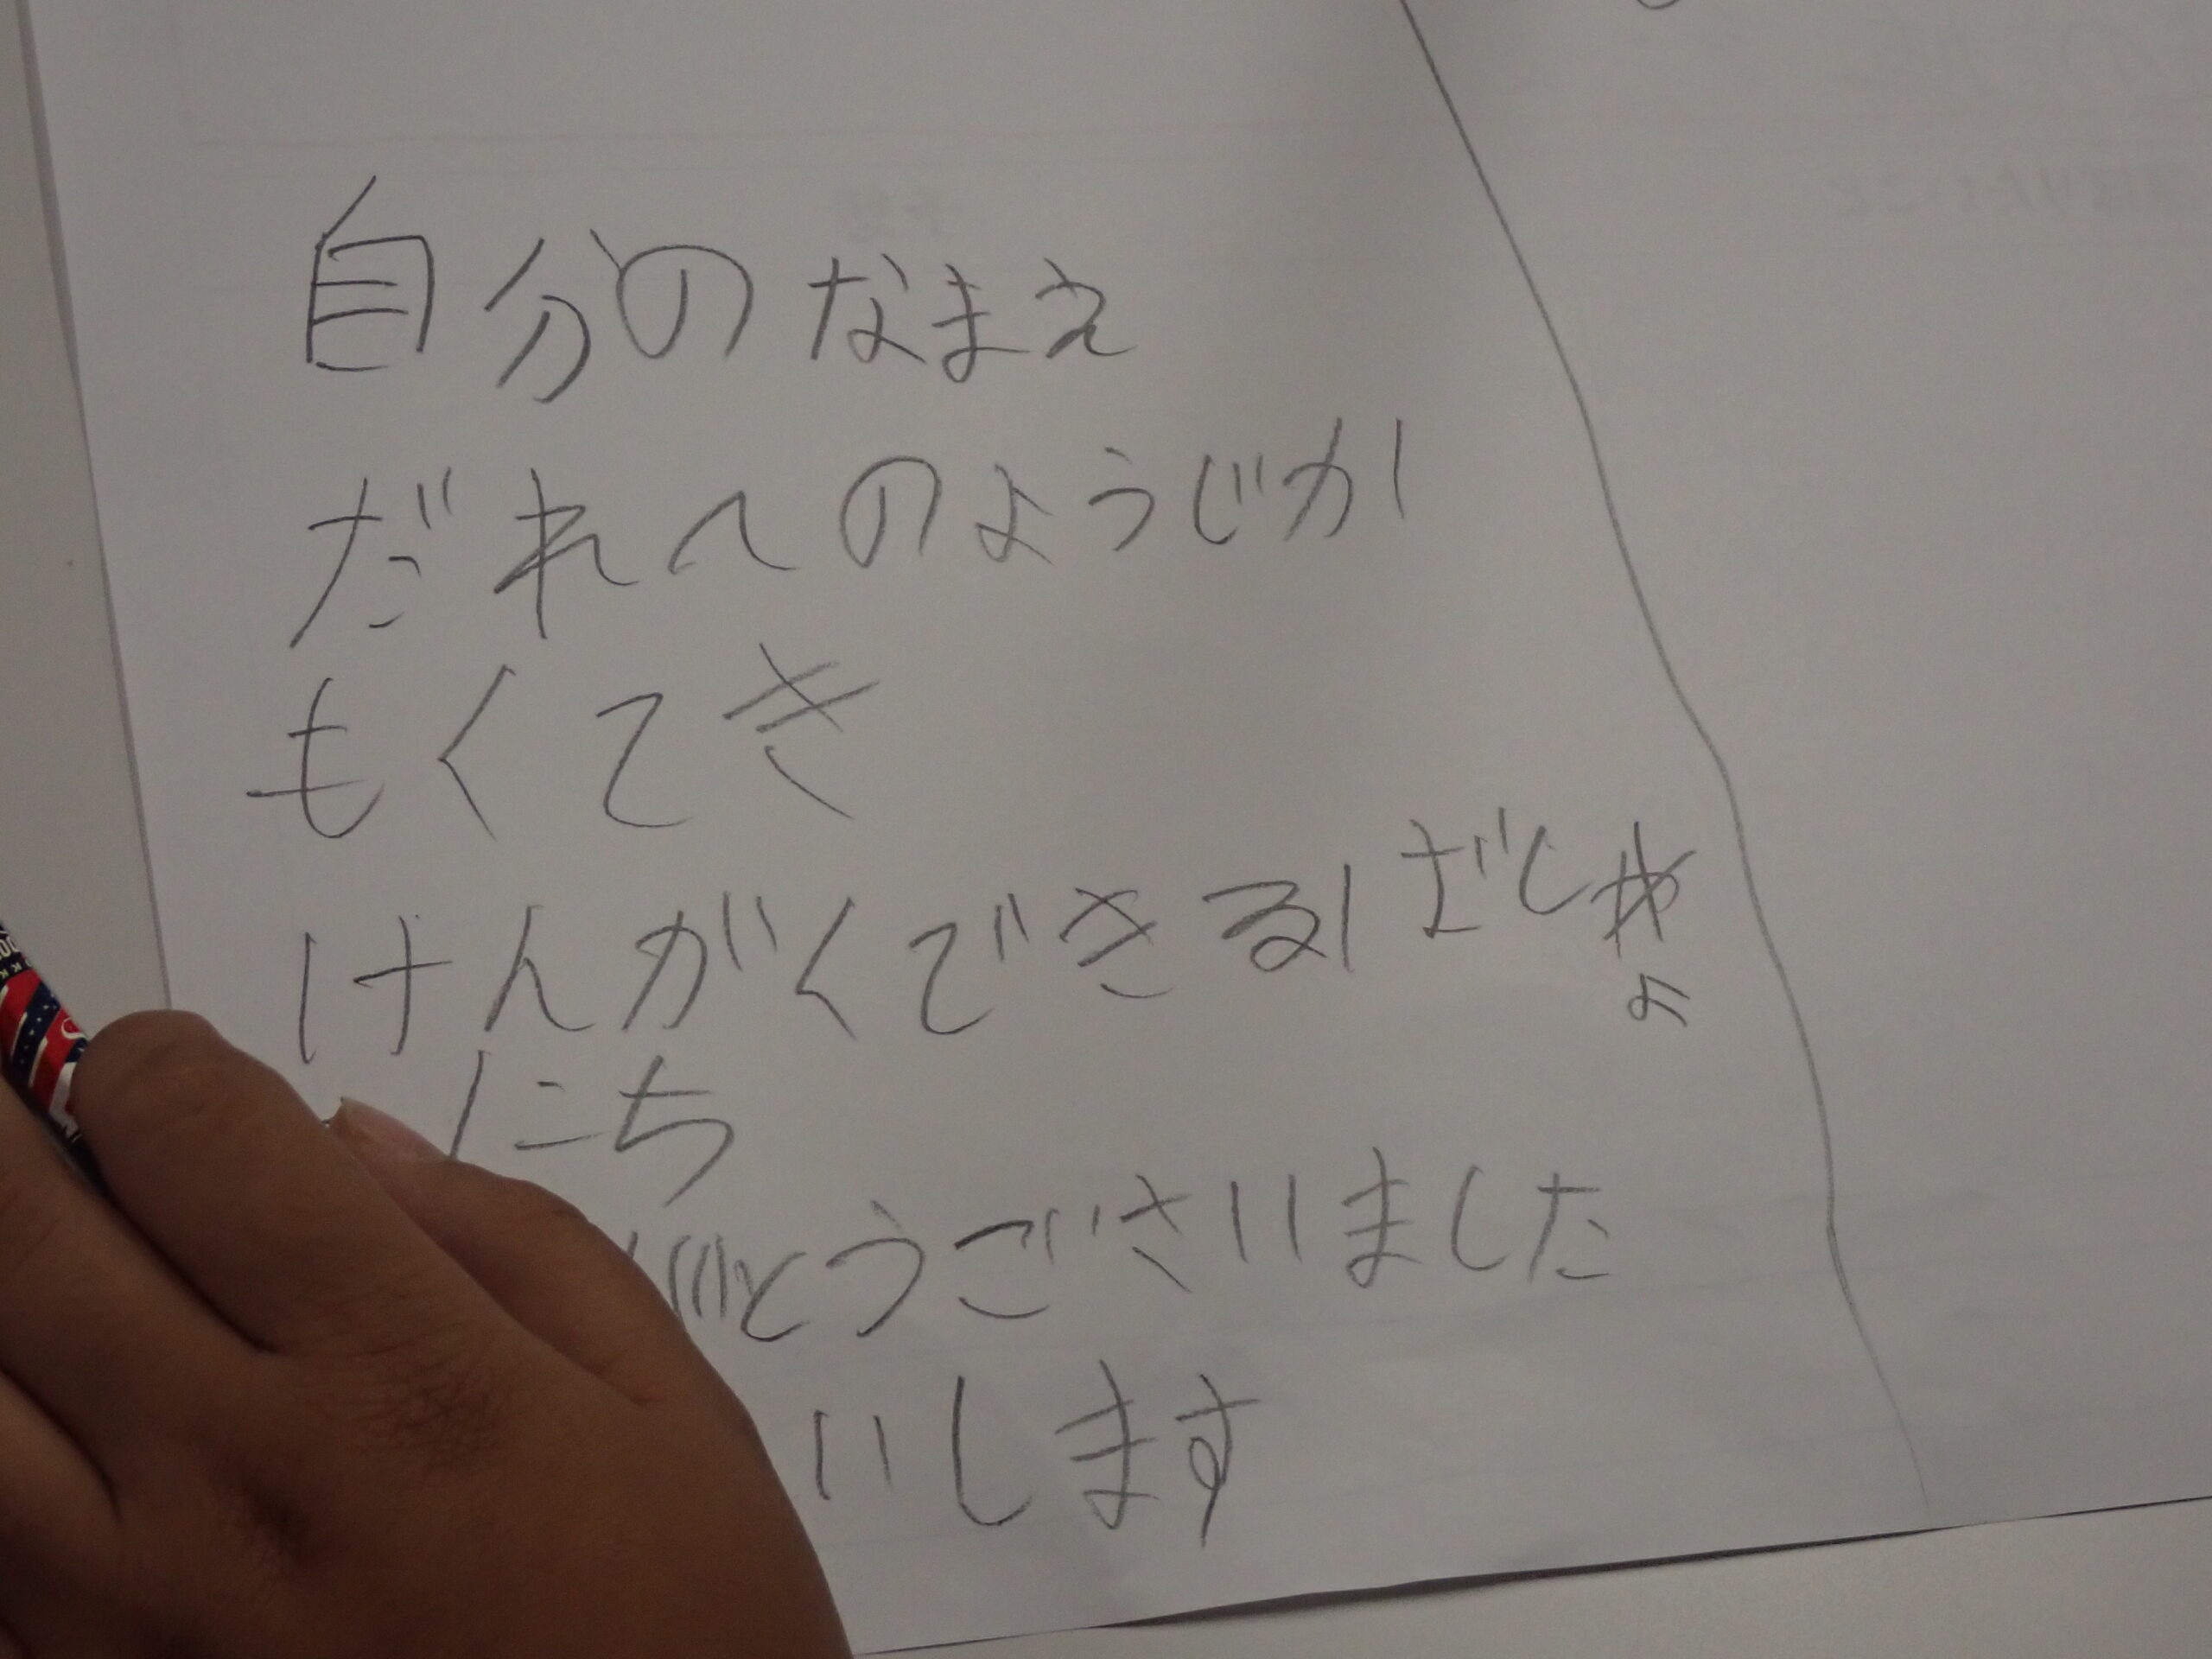 自分のなまえ
だれへのようじか
もくてき
けんがくできるばしょ
にち
がとうございました
いします